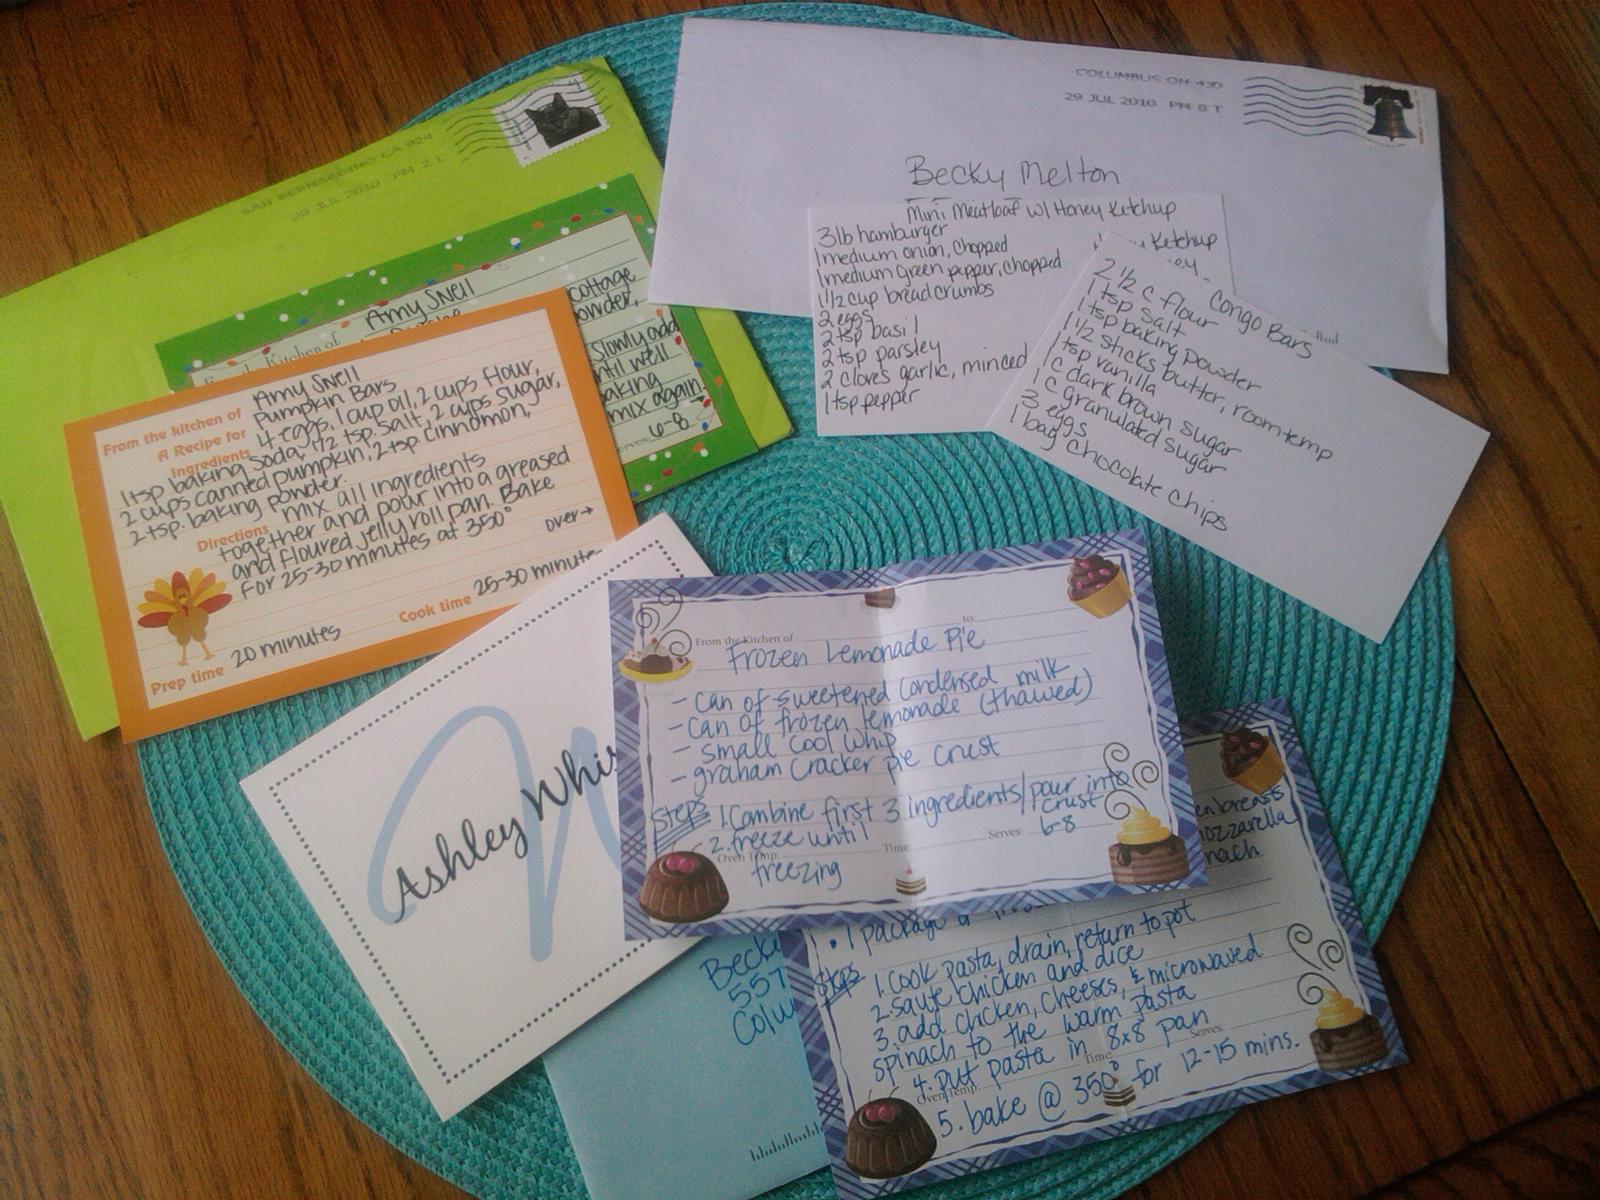 COLUMBUS OH 430
29 JUL 2010 PM 8 T
Becky Melton
SAN BERNARDINO CA 924
28 JUL 2010 PM 2 L
Mini Meatloaf w/ Honey Ketchup
3lb hamburger
1 medium onion, chopped
1 medium Green pepper, chopped
1 1/2 cup bread crumbs
2 eggs
2 tsp basil
2 tsp parsley
2 cloves garlic, minced
1 tsp pepper
Ketchup
Congo Bars
2 1/2 c flour
1 tsp salt
1 tsp baking powder
1 1/2 sticks butter, room temp
1 tsp vanilla
1 c dark brown sugar
1 c granulated sugar
3 eggs
1 bag chocolate chips
Amy Snell
Kitchen of
cottage
powder,
Slowly add
until well
baking
mix again.
6-8
From the kitchen of Amy Snell
A Recipe for Pumpkin Bars
Ingredients 4 eggs, 1 cup oil, 2 cups flour,
1 tsp baking soda, 1/2 tsp. salt, 2 cups sugar,
2 cups canned pumpkin, 2 tsp. cinnamon,
2 tsp. baking powder.
Directions mix all ingredients
together and pour into a greased
and floured jelly roll pan. Bake
for 25-30 minutes at 350°
over →
Prep time 20 minutes Cook time 25-30 minute
Ashley Whi
From the Kitchen of: to:
Frozen Lemonade Pie
- can of sweetened condensed milk
- can of frozen lemonade (thawed)
- small cool whip
- graham cracker pie crust
Steps 1. Combine first 3 ingredients/pour into
crust
2. freeze until
freezing
Oven Temp: Time: Serves: 6-8
en breasts
mozzarella
nach
• 1 package
Steps 1. Cook pasta, drain, return to pot
2. saute chicken and dice
3. add chicken, cheeses, & microwaved
spinach to the warm pasta
4. put pasta in 8x8 pan
Oven Temp: Time: Serves:
5. bake @ 350° for 12-15 mins.
Beck
557
Colu